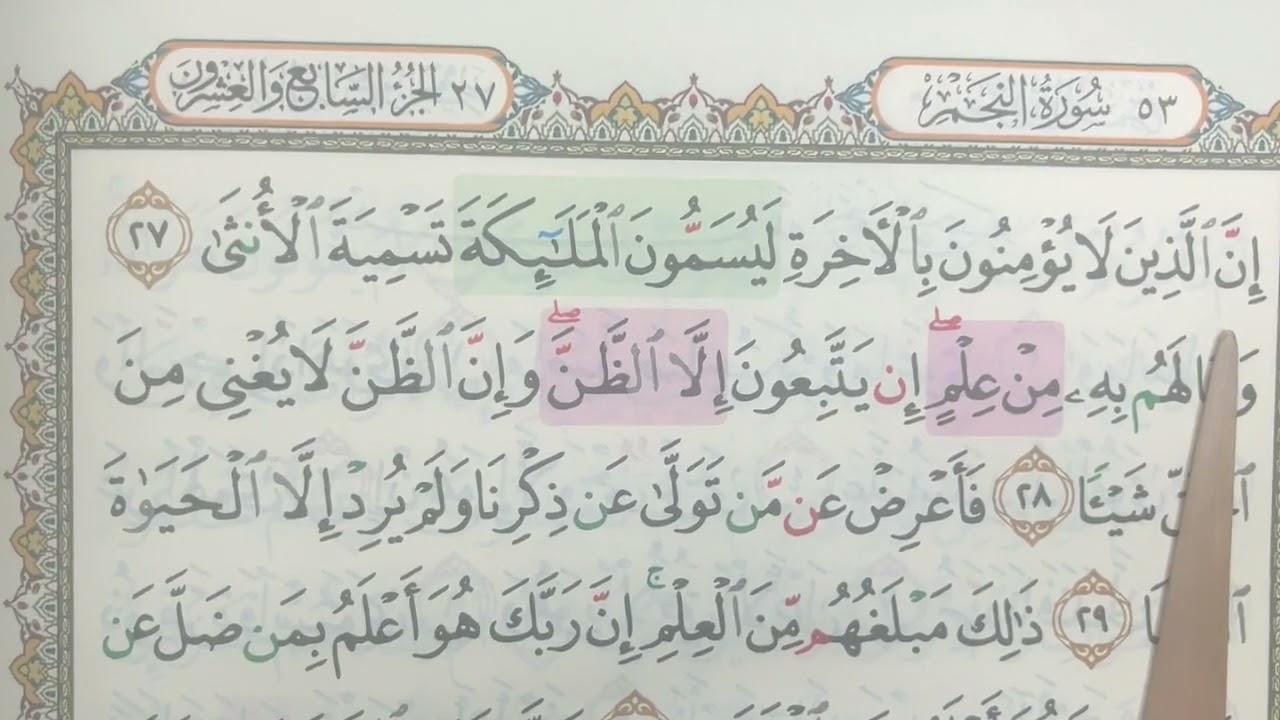 ٥٣ سُورَةُ النَّجْمِ
٢٧ الجُزْءُ السَّابِعُ وَالعِشْرُونَ
إِنَّ ٱلَّذِينَ لَا يُؤْمِنُونَ بِٱلْأَخِرَةِ لَيُسَمُّونَ ٱلْمَلَٰٓئِكَةَ تَسْمِيَةَ ٱلْأُنثَىٰ ٢٧
لَهُم بِهِۦ مِنْ عِلْمٍ ۖ إِن يَتَّبِعُونَ إِلَّا ٱلظَّنَّ ۖ وَإِنَّ ٱلظَّنَّ لَا يُغْنِى مِنَ
شَيْـًٔا ٢٨ فَأَعْرِضْ عَن مَّن تَوَلَّىٰ عَن ذِكْرِنَا وَلَمْ يُرِدْ إِلَّا ٱلْحَيَوٰةَ
٢٩ ذَٰلِكَ مَبْلَغُهُم مِّنَ ٱلْعِلْمِ ۚ إِنَّ رَبَّكَ هُوَ أَعْلَمُ بِمَن ضَلَّ عَن